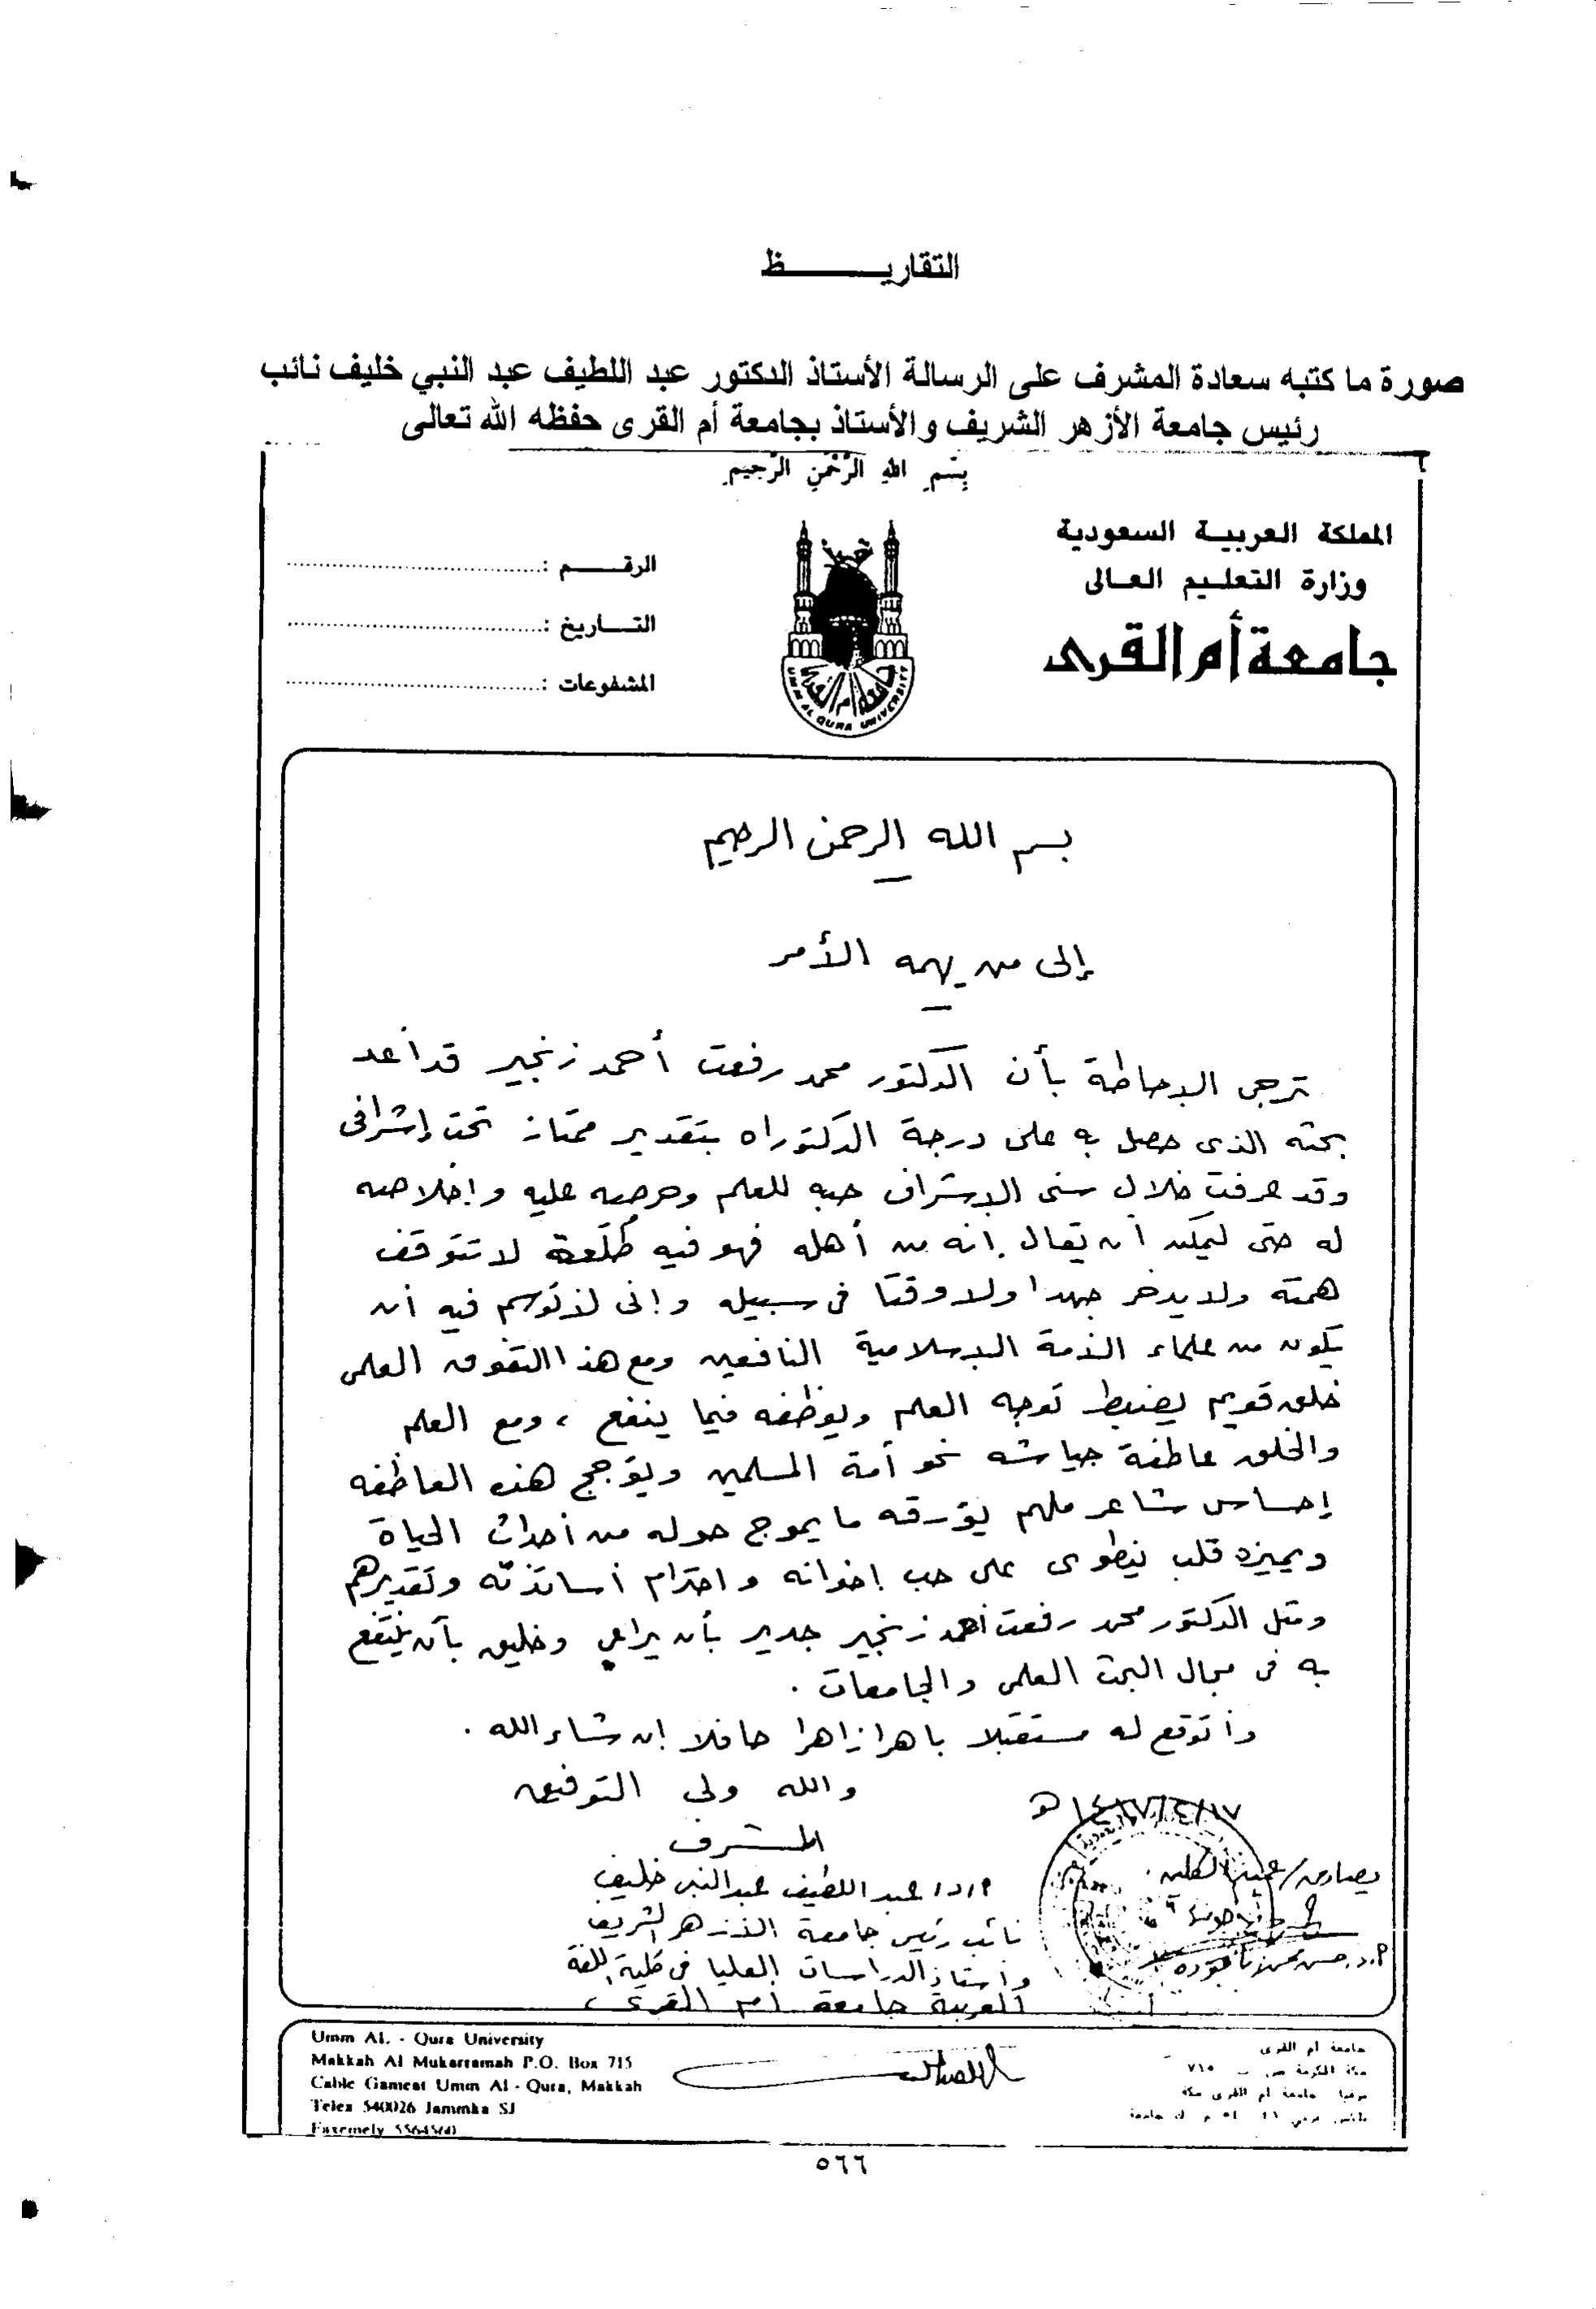 التقاريـــــــــظ
صورة ما كتبه سعادة المشرف على الرسالة الأستاذ الدكتور عبد اللطيف عبد النبي خليف نائب
رئيس جامعة الأزهر الشريف والأستاذ بجامعة أم القرى حفظه الله تعالى
بِسْمِ اللهِ الرَّحْمٰنِ الرَّحِيمِ
المملكة العربيـة السعودية
وزارة التعلـيم العـالى
جامعة أم القرى
الرقــــم :
التــاريخ :
المشفوعات :
جامعة أم القرى
UMM AL QURA UNIVERSITY
بسم الله الرحمن الرحيم
إلى من يهمه الأمر
ترجى الإحاطة بأن الدكتور محمد رفعت أحمد زنجير قد أعد
بحثه الذى حصل به على درجة الدكتوراه بتقدير ممتاز تحت إشرافى
وقد عرفت خلال سنى الإشراف حبه للعلم وحرصه عليه وإخلاصه
له حتى ليمكن أن يقال إنه من أهله فهو فيه طلعة لا تتوقف
همته ولا يدخر جهدا ولا وقتا فى سبيله وإنى لأتوسم فيه أن
يكون من علماء الأمة الإسلامية النافعين ومع هذا التفوق العلمى
خلق قويم يضبط توجه العلم ويوظفه فيما ينفع ، ومع العلم
والخلق عاطفة جياشه نحو أمة المسلمين ويؤجج هذه العاطفه
إحساس شاعر ملهم يؤرقه ما يموج حوله من أحداث الحياة
ويميزه قلب ينطوى على حب إخوانه واحترام أساتذته وتقديرهم
ومثل الدكتور محمد رفعت أحمد زنجير جدير بأن يراعى وخليق بأن ينتفع
به فى مجال البحث العلمى والجامعات .
وأتوقع له مستقبلا باهرا زاهرا حافلا إن شاء الله .
والله ولى التوفيق
١٤١٧/٤/١٧ هـ
المشرف
أ.د/ عبد اللطيف عبد النبى خليف
نائب رئيس جامعة الأزهر الشريف
وأستاذ الدراسات العليا فى كلية اللغة
العربية جامعة أم القرى
يصادق/ عميد الكلية
أ.د. حسن محمد باجودة
Umm AL - Qura University
Makkah Al Mukarramah P.O. Box 715
Cable Gameat Umm Al - Qura, Makkah
Telex 540026 Jammka SJ
Faxemely 5564560
جامعة أم القرى
مكة المكرمة ص . ب ٧١٥
برقيا جامعة أم القرى مكة
٥٦٦